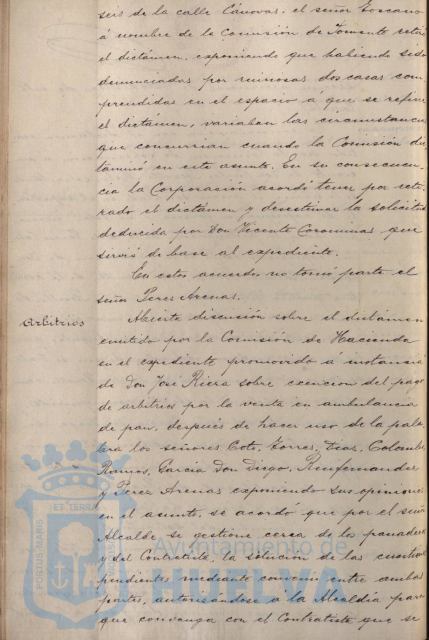 seis de la calle Cánovas, el señor Toscano
á nombre de la Comisión de Fomento retiró
el dictámen, exponiendo que habiendo sido
denunciadas por ruinosas dos casas com
prendidas en el espacio á que se refiere
el dictámen, variaban las circunstancias
que concurrian cuando la Comisión dic
taminó en este asunto. En su consecuen
cia la Corporación acordó tener por reti
rado el dictámen y desestimar la solicitud
deducida por Don Vicente Corominas que
sirvió de base al expediente.
En estos acuerdos no tomó parte el
señor Perez Arenas.
Arbitrios
Abierta discusión sobre el dictámen
emitido por la Comisión de Hacienda
en el expediente promovido á instancia
de Don José Riera sobre exencion del pago
de arbitrios por la venta en ambulancia
de pan, despues de hacer uso de la pala
bra los señores Coto, Torres, Diaz, Colombo,
Ramos, Garcia Don Diego,
y Perez Arenas exponiendo sus opiniones
en el asunto, se acordó que por el señor
Alcalde se gestione cerca de los panaderos
y del Contratista, la solucion de las cuestiones
pendientes mediante convenio entre ambas
partes, autorizándose á la Alcaldía para
que convenga con el Contratista que se
PORTUS MARIS
ET TERRÆ
Ayuntamiento de
HUELVA